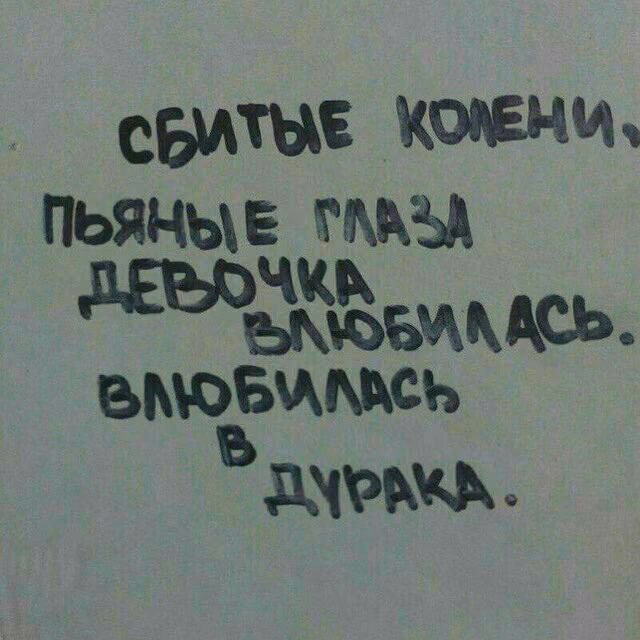 СБИТЫЕ КОЛЕНИ,
ПЬЯНЫЕ ГЛАЗА
ДЕВОЧКА
ВЛЮБИЛАСЬ.
ВЛЮБИЛАСЬ
В
ДУРАКА.